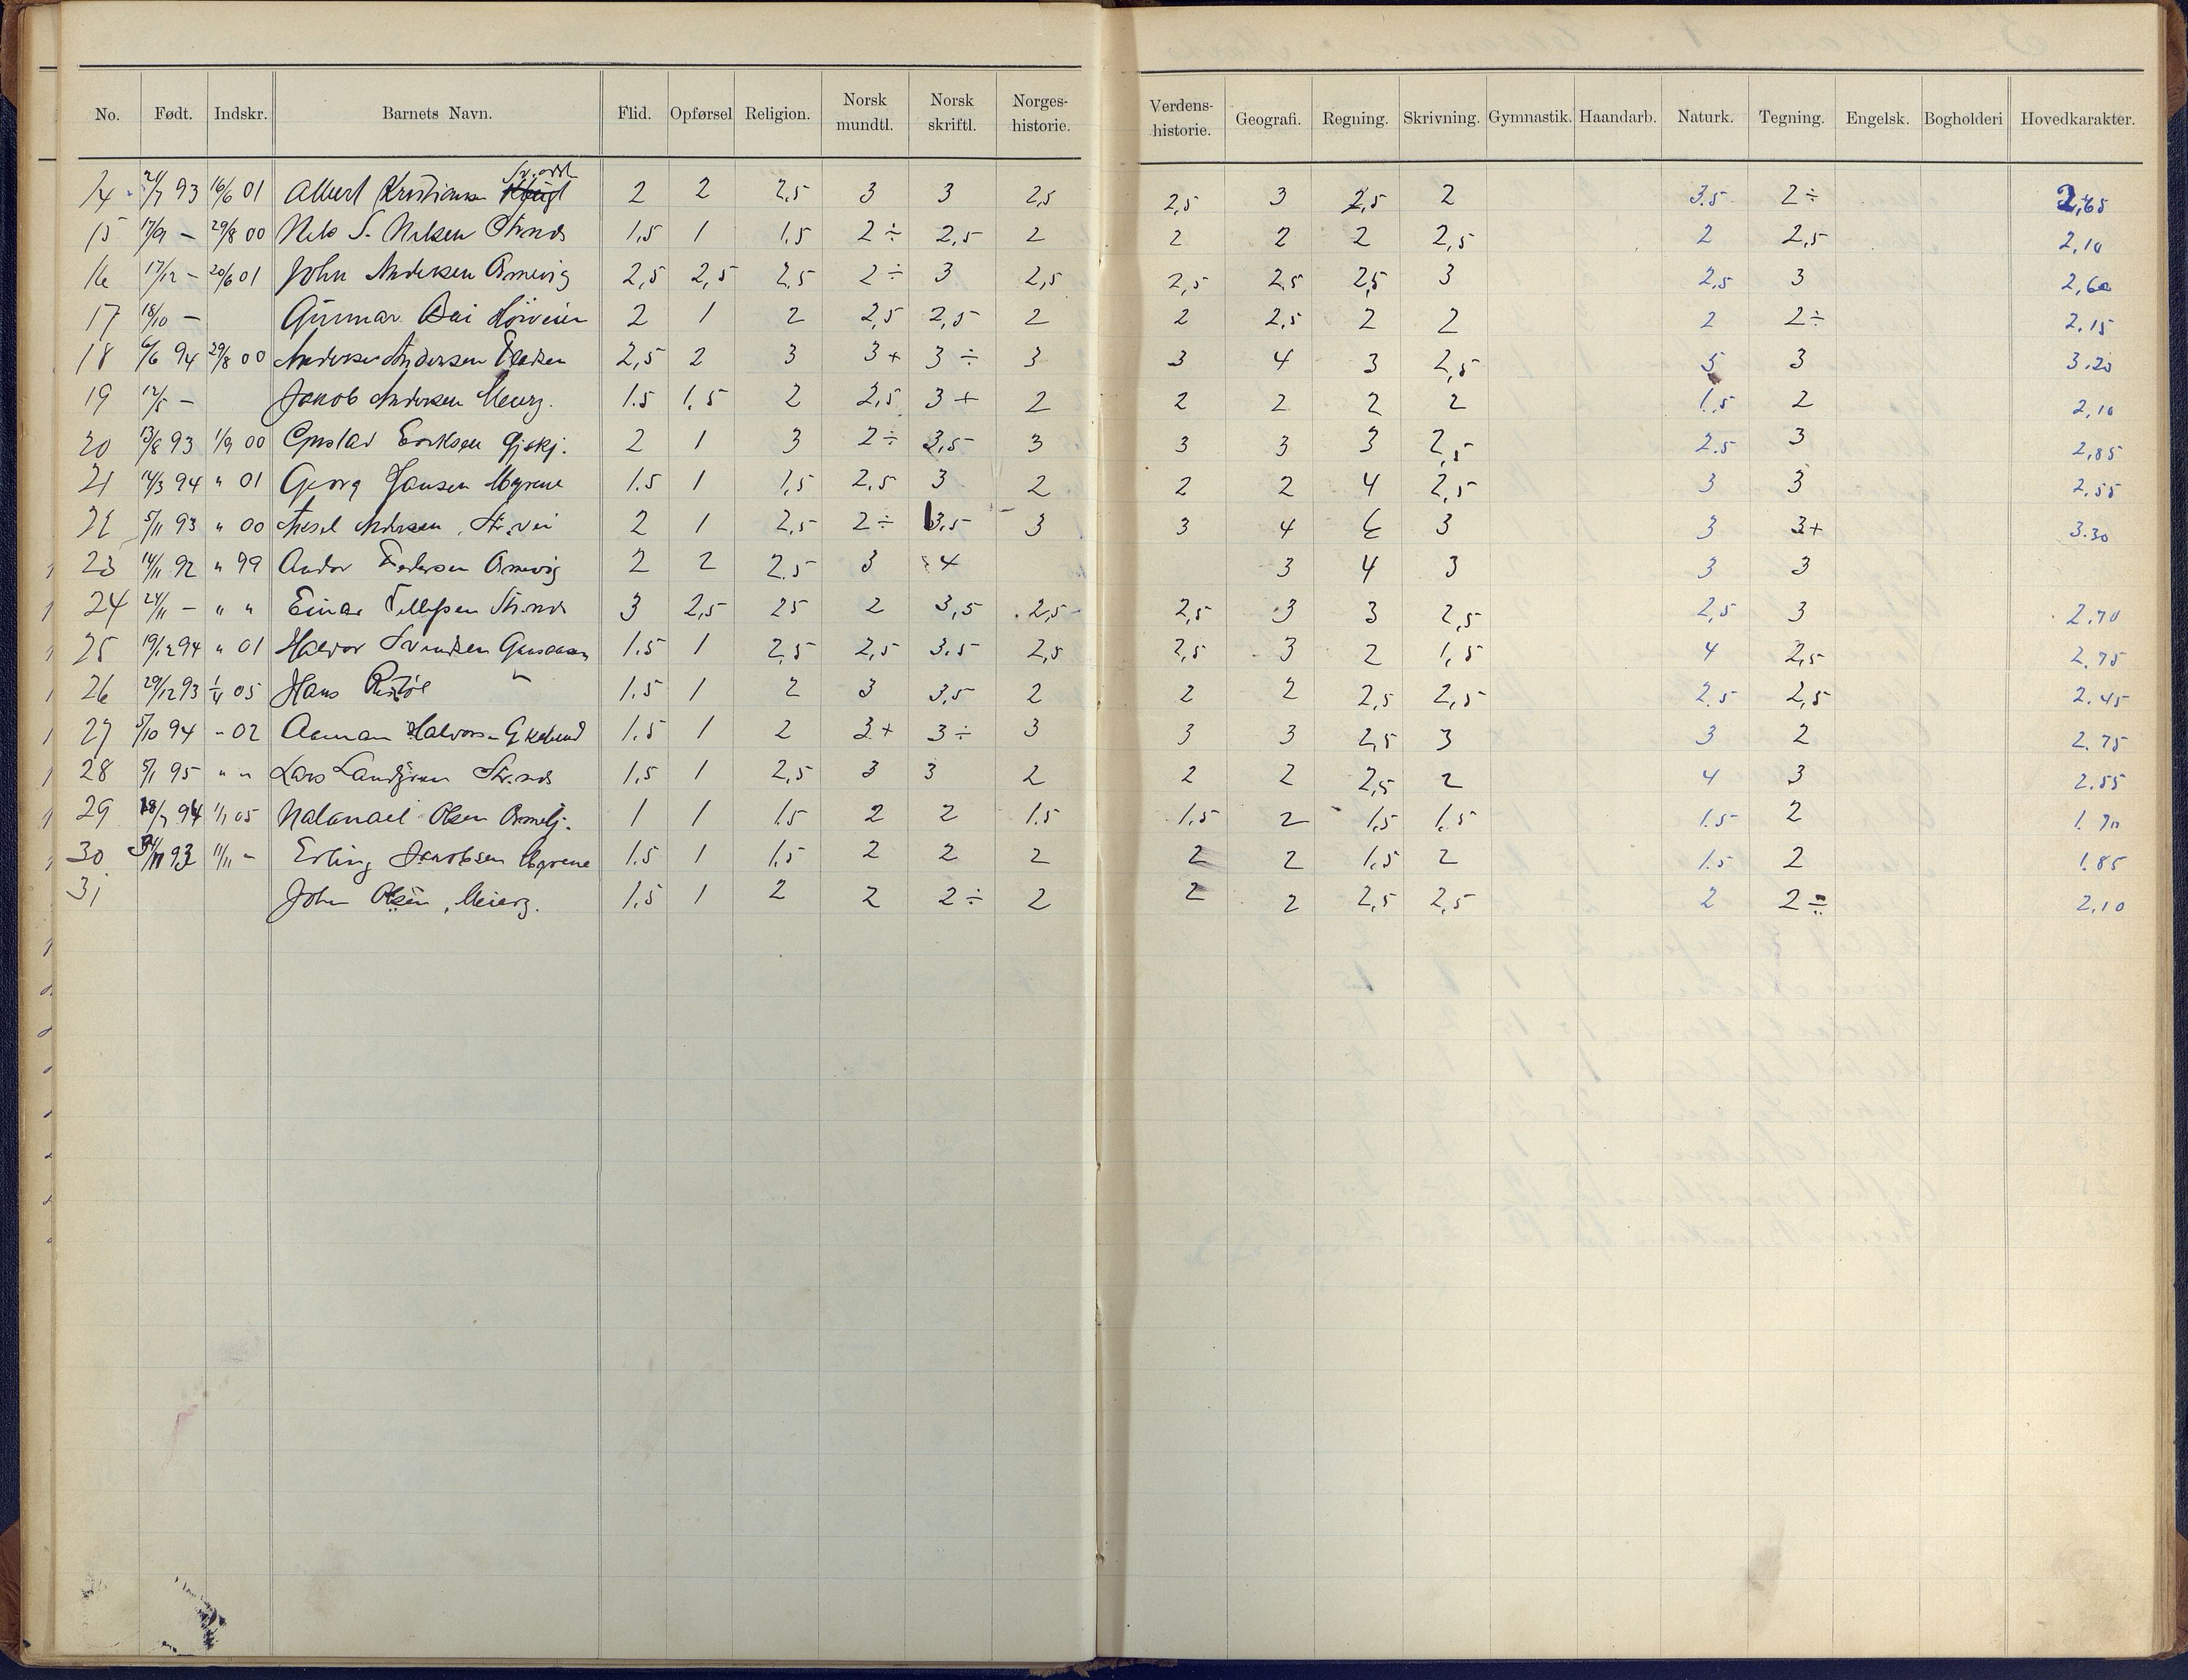 No. Født. Indskr. Barnets Navn. Flid. Opførsel Religion. Norsk mundtl. Norsk skriftl. Norges-historie. Verdens-historie. Geografi. Regning. Skrivning. Gymnastik. Haandarb. Naturk. Tegning. Engelsk. Bogholderi Hovedkarakter.
14 21/7 93 16/6 01 Albert Kristiansen 2 2 2,5 3 3 2,5 2,5 3 2,5 2 3.5 2÷ 2,65
15 17/9 – 29/8 00 Nels S. Nilsen Strnds 1,5 1 1,5 2÷ 2,5 2 2 2 2 2,5 2 2,5 2,10
16 17/12 – 20/6 01 John Andersen Arnevig 2,5 2,5 2,5 2÷ 3 2,5 2,5 2,5 2,5 3 2,5 3 2,60
17 18/10 – Gunnar Hörveien 2 1 2 2,5 2,5 2 2 2,5 2 2 2 2÷ 2.15
18 6/6 94 29/8 00 Andersen 2,5 2 3 3+ 3÷ 3 3 4 3 2,5 5 3 3.20
19 12/5 – Jakob Andersen Meierg. 1.5 1,5 2 2,5 3+ 2 2 2 2 2 1,5 2 2,10
20 13/8 93 1/9 00 Gustav Eriksen Gjskj. 2 1 3 2÷ 3,5 3 3 3 3 2,5 2.5 3 2,85
21 14/3 94 " 01 Georg Hansen Mgrene 1.5 1 1,5 2,5 3 2 2 2 4 2,5 3 3 2,55
22 5/11 93 " 00 Andersen, Str.vei 2 1 2,5 2÷ 3.5 3 3 4 3 3 3+ 3.30
23 14/11 92 " 99 Andor Pedersen Arnevig 2 2 2.5 3 4 3 4 3 3 3
24 24/11 – " " Einar Tellefsen Strnds 3 2,5 25 2 3,5 2,5 2,5 3 3 2,5 2,5 3 2.70
25 19/12 94 " 01 Halvor Svendsen 1.5 1 2,5 2,5 3.5 2,5 2,5 3 2 1,5 4 2,5 2.75
26 29/12 93 1/4 05 Hans 1.5 1 2 3 3,5 2 2 2 2,5 2,5 2.5 2,5 2.45
27 5/10 94 " 02 Aanan Halvorsen 1.5 1 2 3+ 3÷ 3 3 3 2,5 3 3 2 2.75
28 5/1 95 " " Lars Strnds 1,5 1 2,5 3 3 2 2 2 2,5 2 4 3 2.55
29 18/7 94 11/1 05 Natanael Olsen 1 1 1.5 2 2 1.5 1.5 2 1,5 1.5 1.5 2 1.70
30 93 11/11 – Erling Jacobsen Mgrene 1.5 1 1,5 2 2 2 2 2 1,5 2 1.5 2 1.85
31 John Olsen, Meierg. 1,5 1 2 2 2÷ 2 2 2 2,5 2,5 2 2÷ 2,10